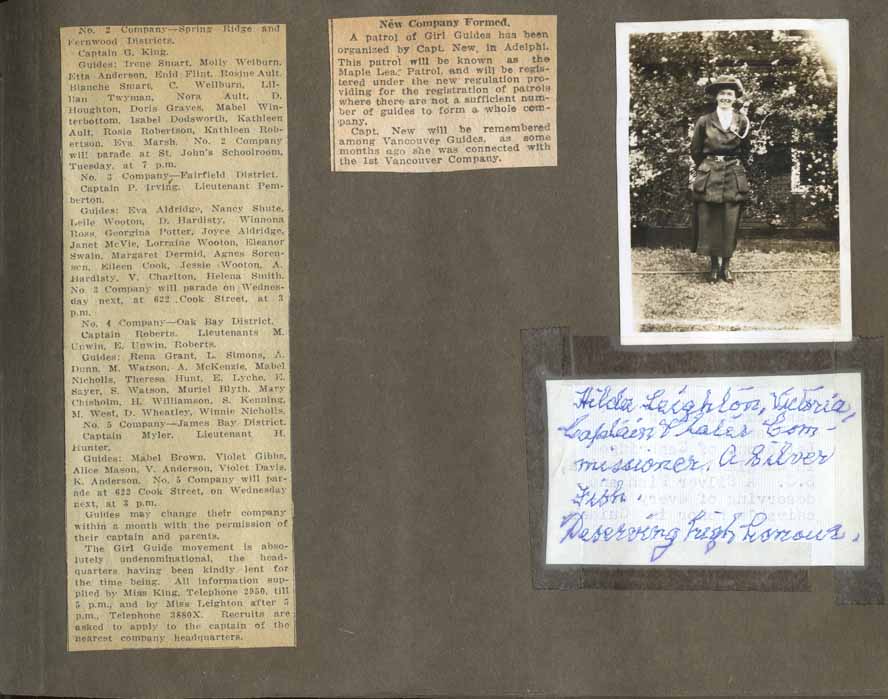 No. 2 Company—Spring Ridge and
Fernwood Districts.
Captain G. King.
Guides: Irene Smart, Molly Welburn,
Etta Anderson, Enid Flint, Rosine Ault,
Blanche Smart, C. Wellburn, Lil-
lian Twyman, Nora Ault, D.
Houghton, Doris Graves, Mabel Win-
terbottom, Isabel Dodsworth, Kathleen
Ault, Rosie Robertson, Kathleen Rob-
ertson, Eva Marsh. No. 2 Company
will parade at St. John's Schoolroom,
Tuesday, at 7 p.m.
No. 3 Company—Fairfield District.
Captain P. Irving. Lieutenant Pem-
berton.
Guides: Eva Aldridge, Nancy Shute,
Leile Wooton, D. Hardisty, Winnona
Ross, Georgina Potter, Joyce Aldridge,
Janet McVie, Lorraine Wooton, Eleanor
Swain, Margaret Dermid, Agnes Soren-
sen, Eileen Cook, Jessie Wooton, A.
Hardisty, V. Charlton, Helena Smith.
No 3 Company will parade on Wednes-
day next, at 622 Cook Street, at 3
p.m.
No. 4 Company—Oak Bay District.
Captain Roberts. Lieutenants M.
Unwin, E. Unwin, Roberts.
Guides: Rena Grant, L. Simons, A.
Dunn, M. Watson, A. McKenzie, Mabel
Nicholls, Theresa Hunt, E. Lyche, E.
Sayer, S. Watson, Muriel Blyth, Mary
Chisholm, H. Williamson, S. Kenning,
M. West, D. Wheatley, Winnie Nicholls.
No. 5 Company—James Bay District.
Captain Myler, Lieutenant H.
Hunter.
Guides: Mabel Brown, Violet Gibbs,
Alice Mason, V. Anderson, Violet Davis,
K. Anderson. No. 5 Company will par-
ade at 622 Cook Street, on Wednesday
next, at 3 p.m.
Guides may change their company
within a month with the permission of
their captain and parents.
The Girl Guide movement is abso-
lutely undenominational, the head-
quarters having been kindly lent for
the time being. All information sup-
plied by Miss King, Telephone 2050, till
5 p.m., and by Miss Leighton after 5
p.m., Telephone 3880X. Recruits are
asked to apply to the captain of the
nearest company headquarters.
New Company Formed.
A patrol of Girl Guides has been
organized by Capt. New, in Adelphi.
This patrol will be known as the
Maple Leaf Patrol, and will be regis-
tered under the new regulation pro-
viding for the registration of patrols
where there are not a sufficient num-
ber of guides to form a whole com-
pany.
Capt. New will be remembered
among Vancouver Guides, as some
months ago she was connected with
the 1st Vancouver Company.
Hilda Leighton, Victoria,
Captain & later Com-
missioner. A Silver
Fish.
Deserving high honours.